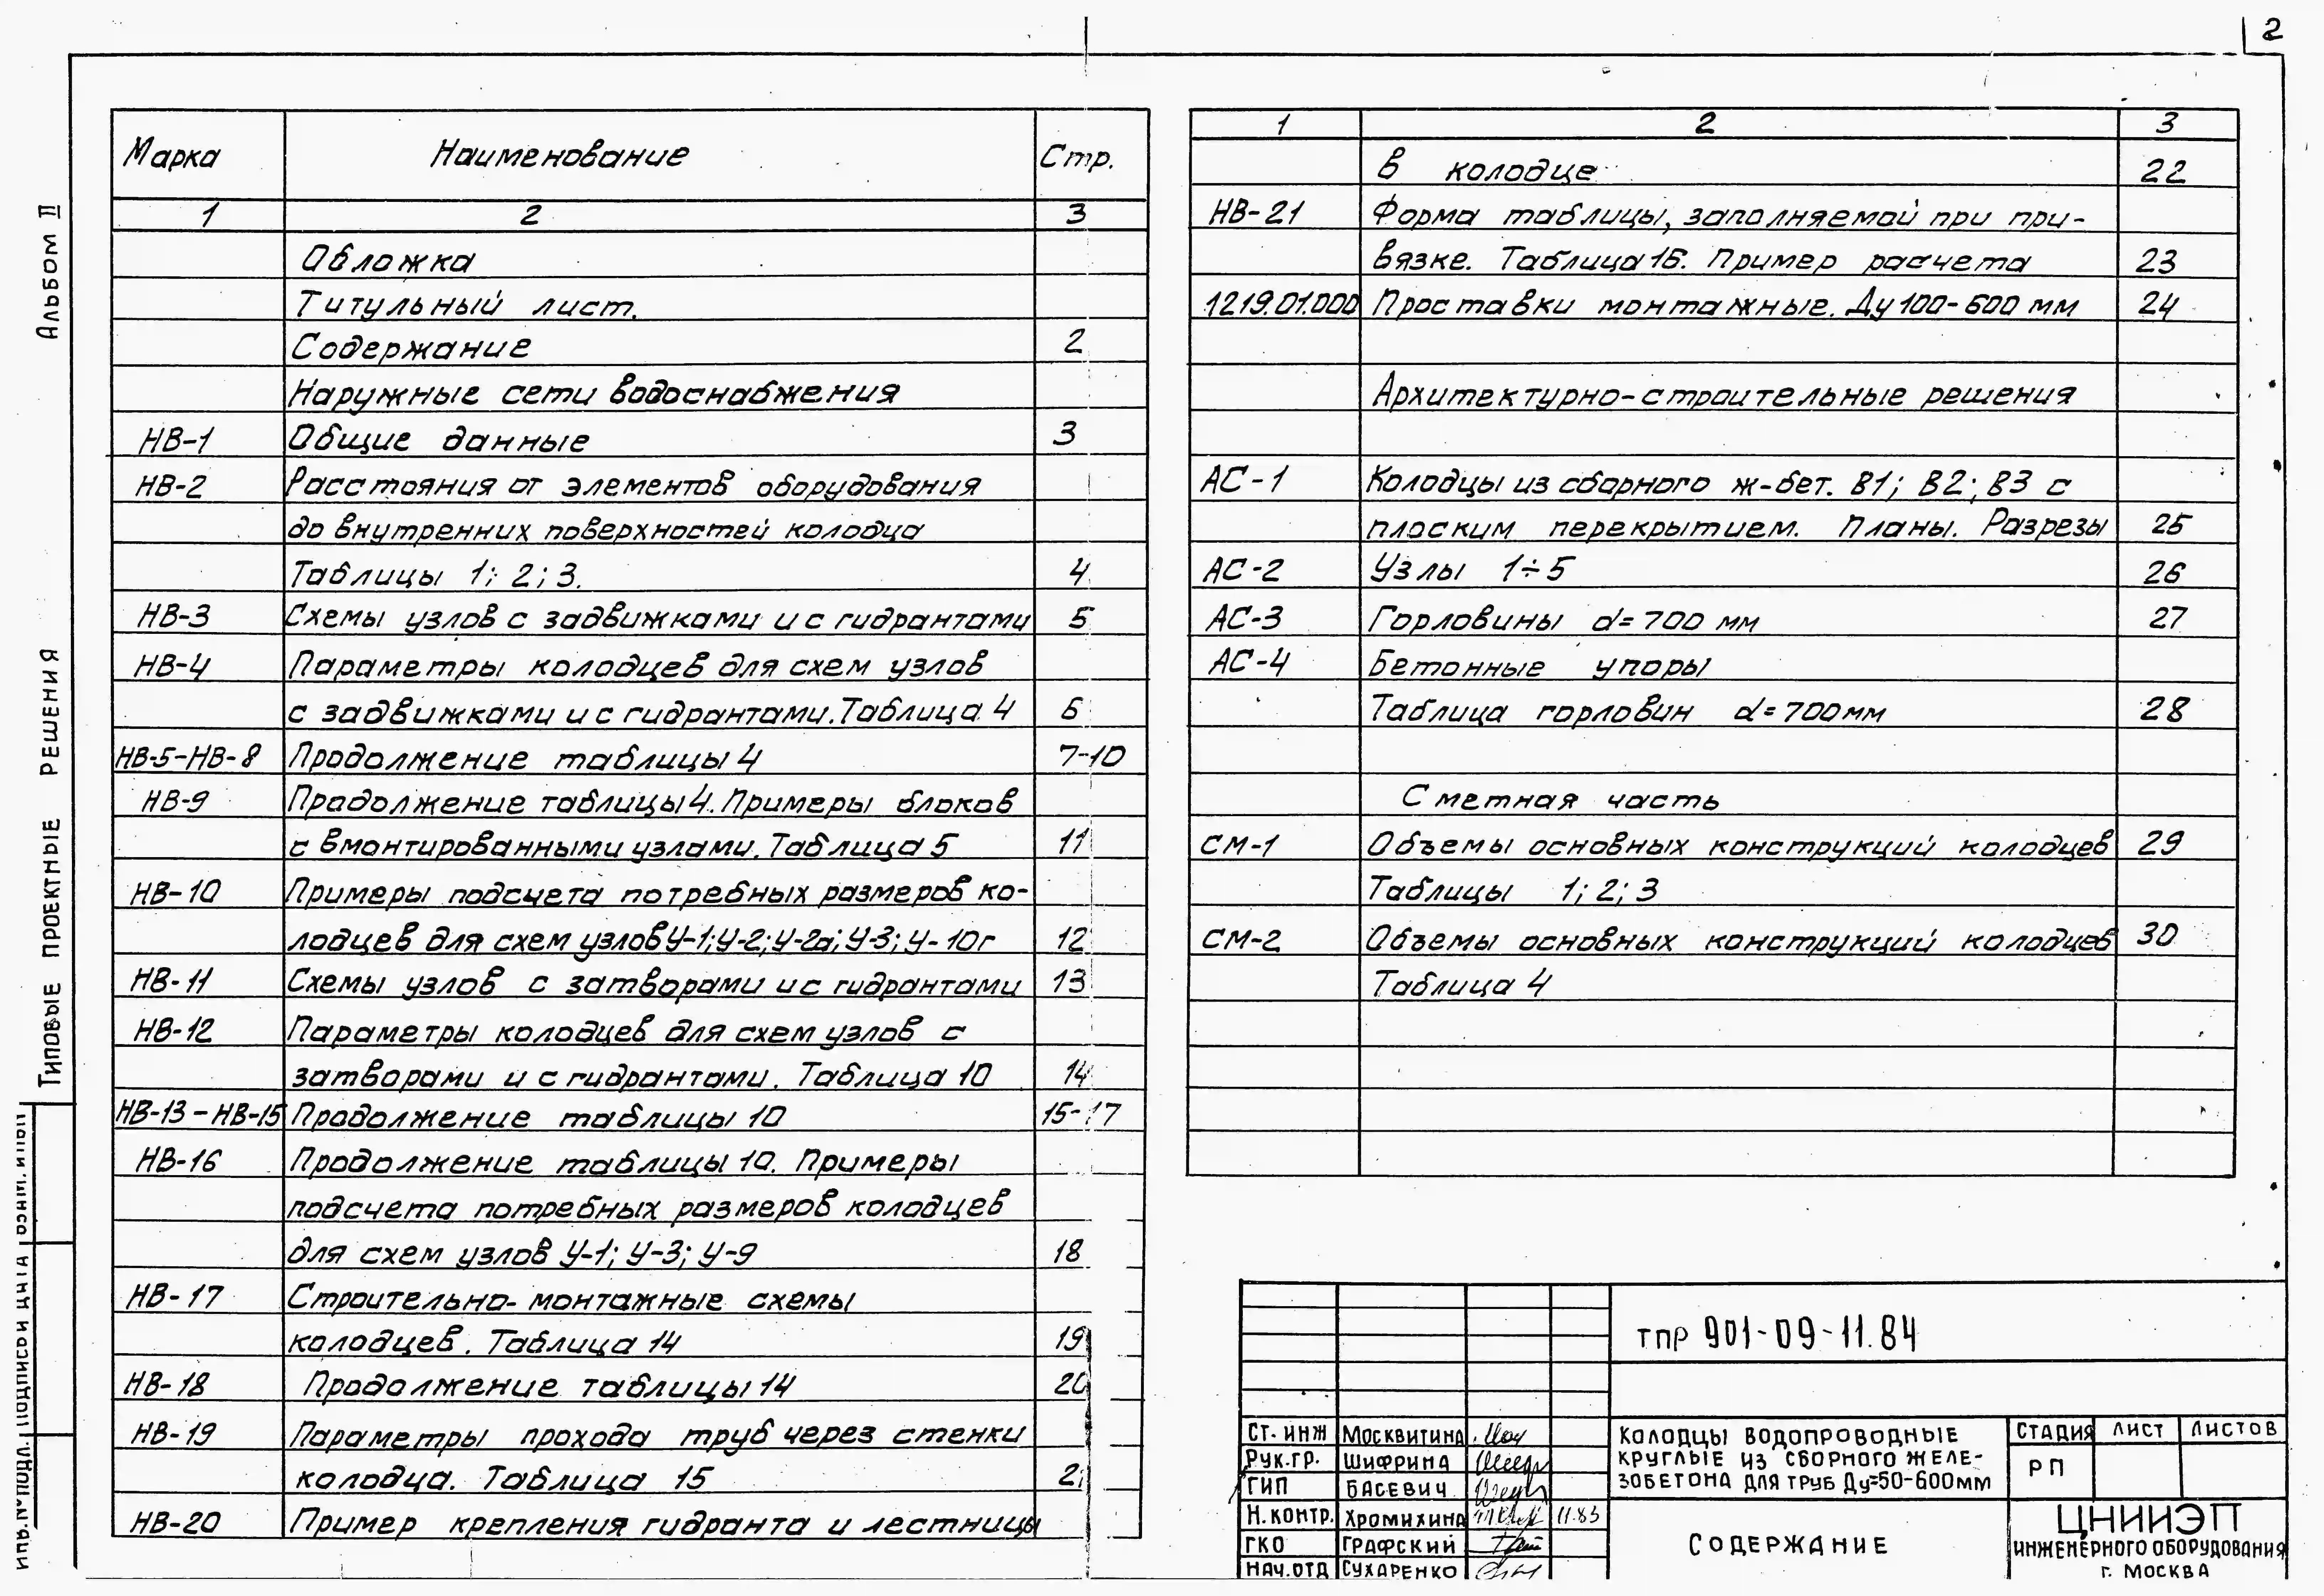 2
Альбом II
Типовые проектные решения
Марка Наименование Стр.
1 2 3
Обложка
Титульный лист.
Содержание 2
Наружные сети водоснабжения
НВ-1 Общие данные 3
НВ-2 Расстояния от элементов оборудования
до внутренних поверхностей колодца
Таблицы 1; 2; 3. 4
НВ-3 Схемы узлов с задвижками и с гидрантами 5
НВ-4 Параметры колодцев для схем узлов
с задвижками и с гидрантами. Таблица 4 6
НВ-5-НВ-8 Продолжение таблицы 4 7-10
НВ-9 Продолжение таблицы 4. Примеры блоков
с вмонтированными узлами. Таблица 5 11
НВ-10 Примеры подсчета потребных размеров ко-
лодцев для схем узлов У-1; У-2; У-2а; У-3; У-10г 12
НВ-11 Схемы узлов с затворами и с гидрантами 13
НВ-12 Параметры колодцев для схем узлов с
затворами и с гидрантами. Таблица 10 14
НВ-13-НВ-15 Продолжение таблицы 10 15-17
НВ-16 Продолжение таблицы 10. Примеры
подсчета потребных размеров колодцев
для схем узлов У-1; У-3; У-9 18
НВ-17 Строительно-монтажные схемы
колодцев. Таблица 14 19
НВ-18 Продолжение таблицы 14 20
НВ-19 Параметры прохода труб через стенки
колодца. Таблица 15 2
НВ-20 Пример крепления гидранта и лестницы
1 2 3
в колодце 22
НВ-21 Форма таблицы, заполняемой при при-
вязке. Таблица 16. Пример расчета 23
1219.01.000 Проставки монтажные. Ду 100-600 мм 24
Архитектурно-строительные решения
АС-1 Колодцы из сборного ж-бет. В1; В2; В3 с
плоским перекрытием. Планы. Разрезы 25
АС-2 Узлы 1÷5 26
АС-3 Горловины d=700 мм 27
АС-4 Бетонные упоры
Таблица горловин d=700мм 28
Сметная часть
СМ-1 Объемы основных конструкций колодцев 29
Таблицы 1; 2; 3
СМ-2 Объемы основных конструкций колодцев 30
Таблица 4
ТПР 901-09-11.84
Ст. инж Москвитина
Рук.гр. Шифрина
ГИП Басевич
Н.контр. Хромихина 11.83
ГКО Графский
Нач.отд Сухаренко
Колодцы водопроводные
круглые из сборного желе-
зобетона для труб Ду=50-600мм
Стадия Лист Листов
РП
Содержание
ЦНИИЭП
инженерного оборудования
г. Москва
Инв.№подл. Подписи и дата